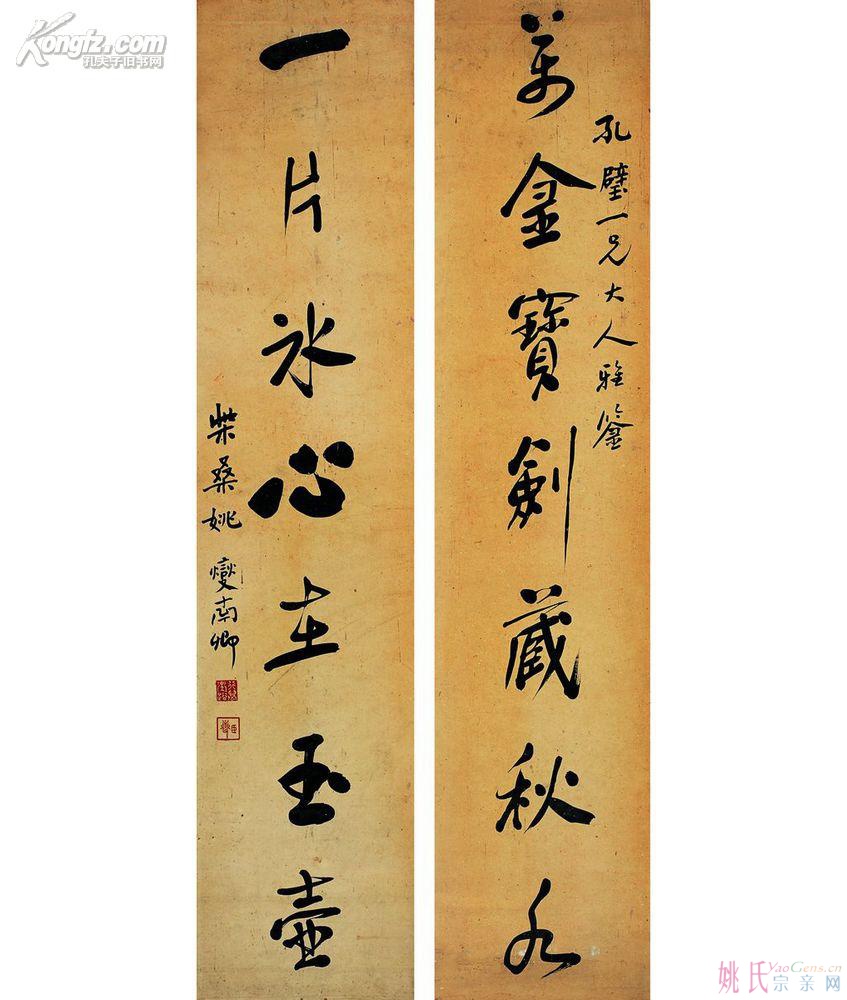 孔璧一兄大人雅鉴
萬金寶劍藏秋水
一片冰心在玉壺
柴桑姚燮南卿
Kongfz.com
孔夫子旧书网
姚氏 YaoGens.cn
宗亲网